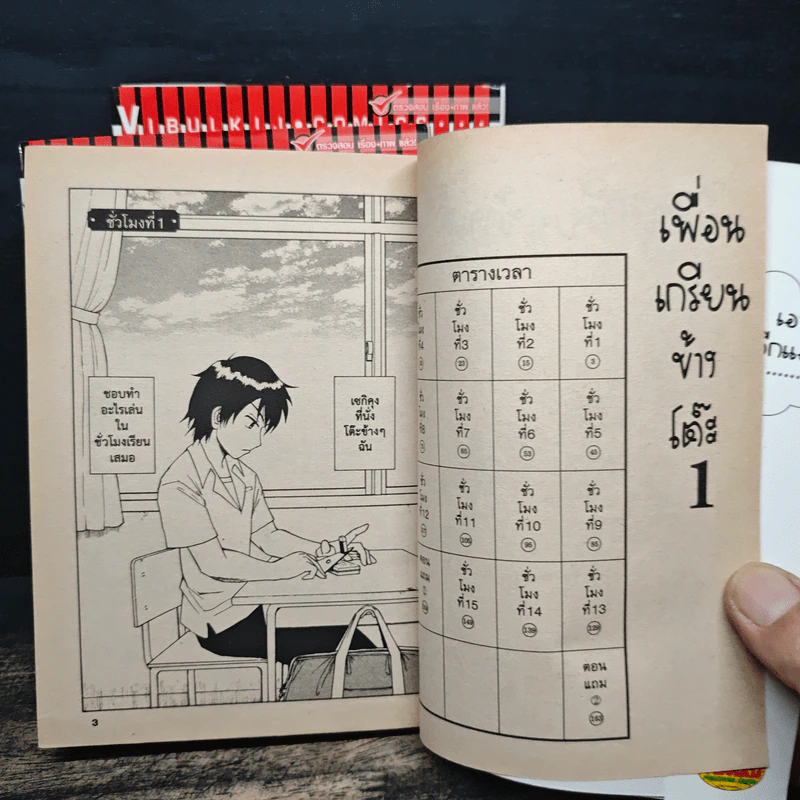 VIBULKIJ COMICS
ตรวจสอบ เรื่อง+ภาพ แล้ว!
ตรวจสอบ เรื่อง+ภาพ แล้ว!
ชั่วโมงที่ 1
เซกิคุง
ที่นั่ง
โต๊ะข้างๆ
ฉัน
ชอบทำ
อะไรเล่น
ใน
ชั่วโมงเรียน
เสมอ
3
เพื่อน
เกรียน
ข้าง
โต๊ะ
1
ตารางเวลา
ชั่วโมงที่1 3
ชั่วโมงที่2 15
ชั่วโมงที่3 23
ชั่วโมงที่5 45
ชั่วโมงที่6 53
ชั่วโมงที่7 65
ชั่วโมงที่9 85
ชั่วโมงที่10 95
ชั่วโมงที่11 105
ชั่วโมงที่13 129
ชั่วโมงที่14 139
ชั่วโมงที่15 149
ตอนแถม② 163